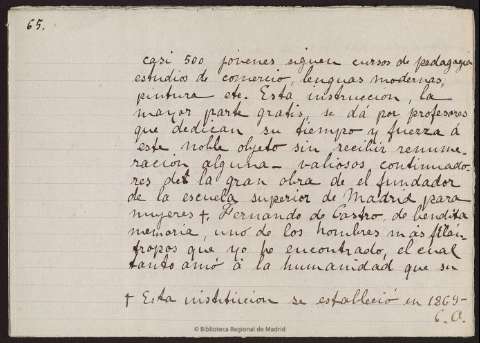 65.
casi 500 jovenes siguen cursos de pedagogia
estudios de comercio, lenguas modernas,
pintura etc. Esta instruccion, la
mayor parte gratis, se dá por profesores
que dedican su tiempo y fuerza á
este noble objeto sin recibir renume-
racion alguna - valiosos continuado-
res de la gran obra de el fundador
de la escuela superior de Madrid para
mujeres †, Fernando de Castro, de bendita
memoria, uno de los hombres más filán-
tropos que yo he encontrado, el cual
tanto amó á la humanidad que su
† Esta institucion se estableció en 1869-
C. A.
© Biblioteca Regional de Madrid